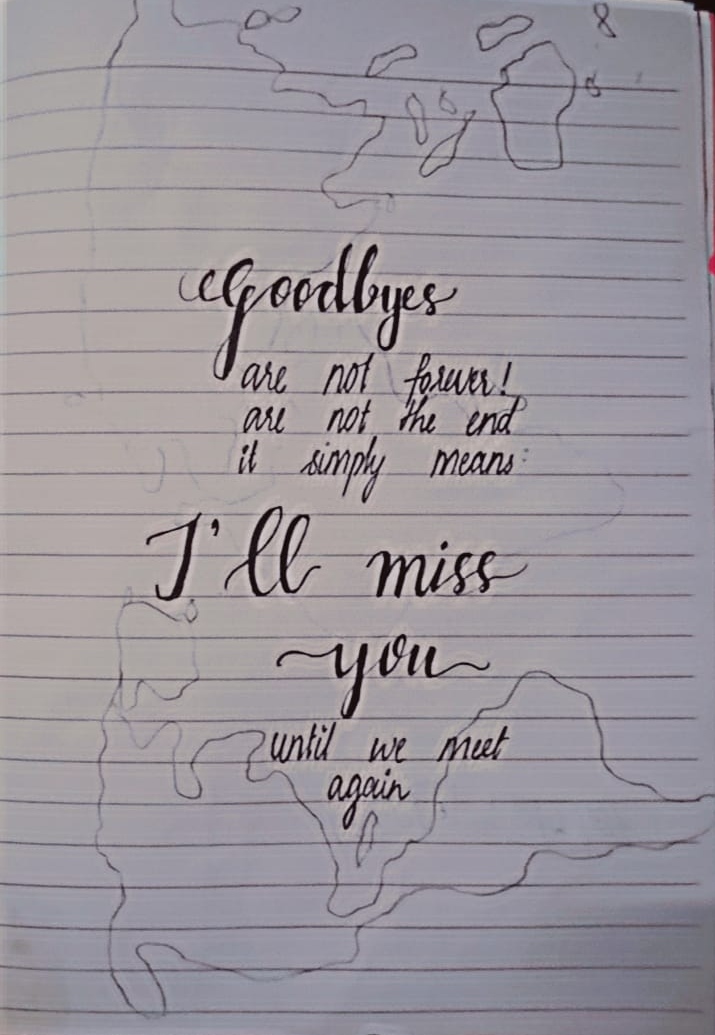 Goodbyes
are not forever!
are not the end
it simply means:
I'll miss
~you~
until we meet
again